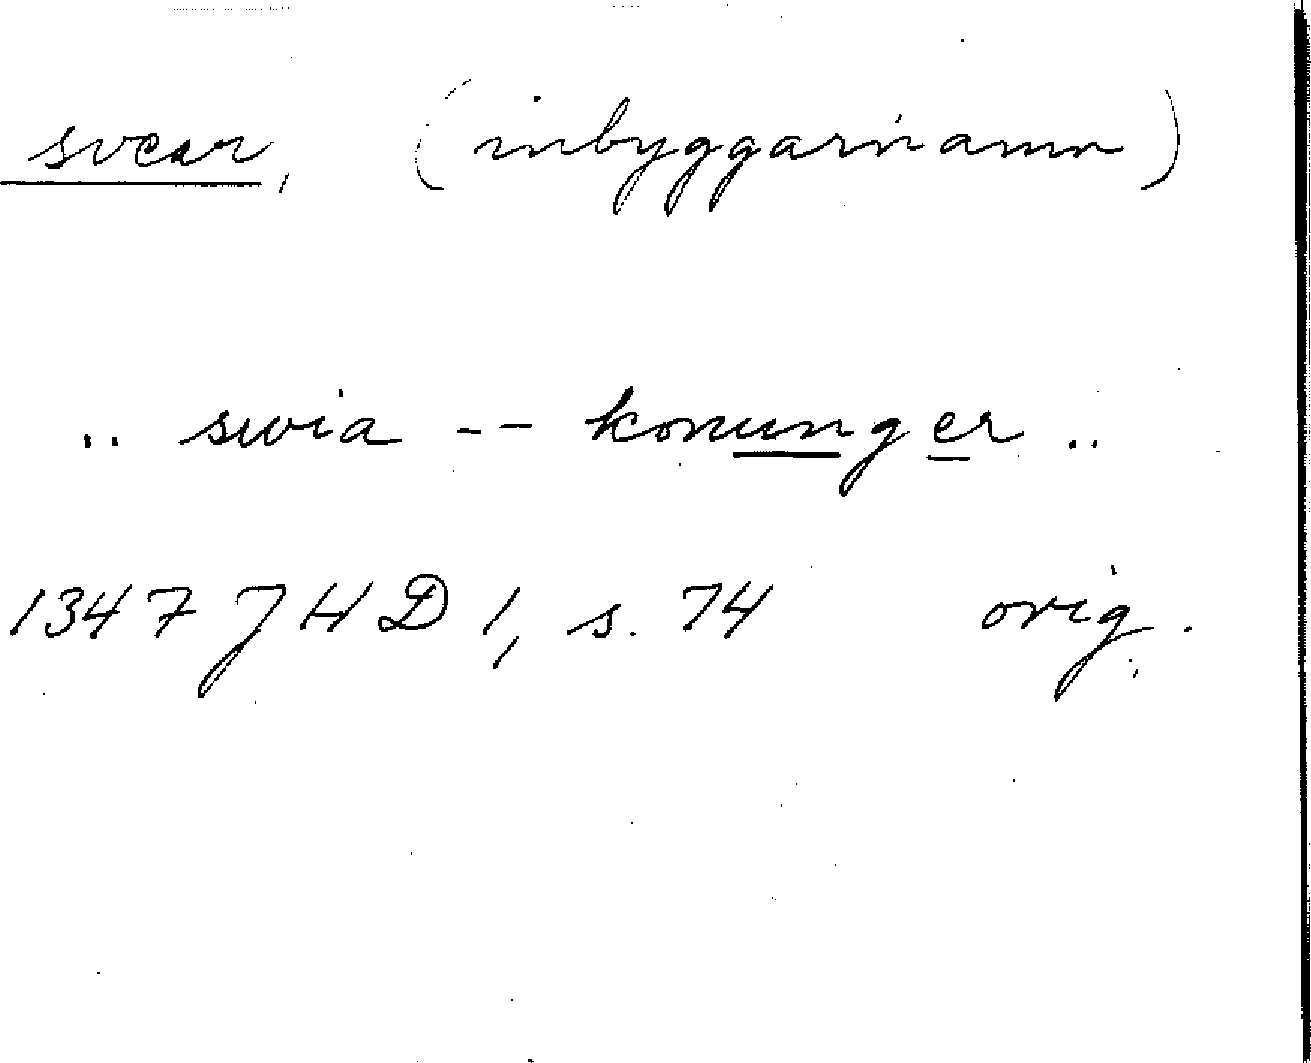 svear, (inbyggarnamn)
.. swia -- konunger ..
1347 JHD 1, s. 74 orig.